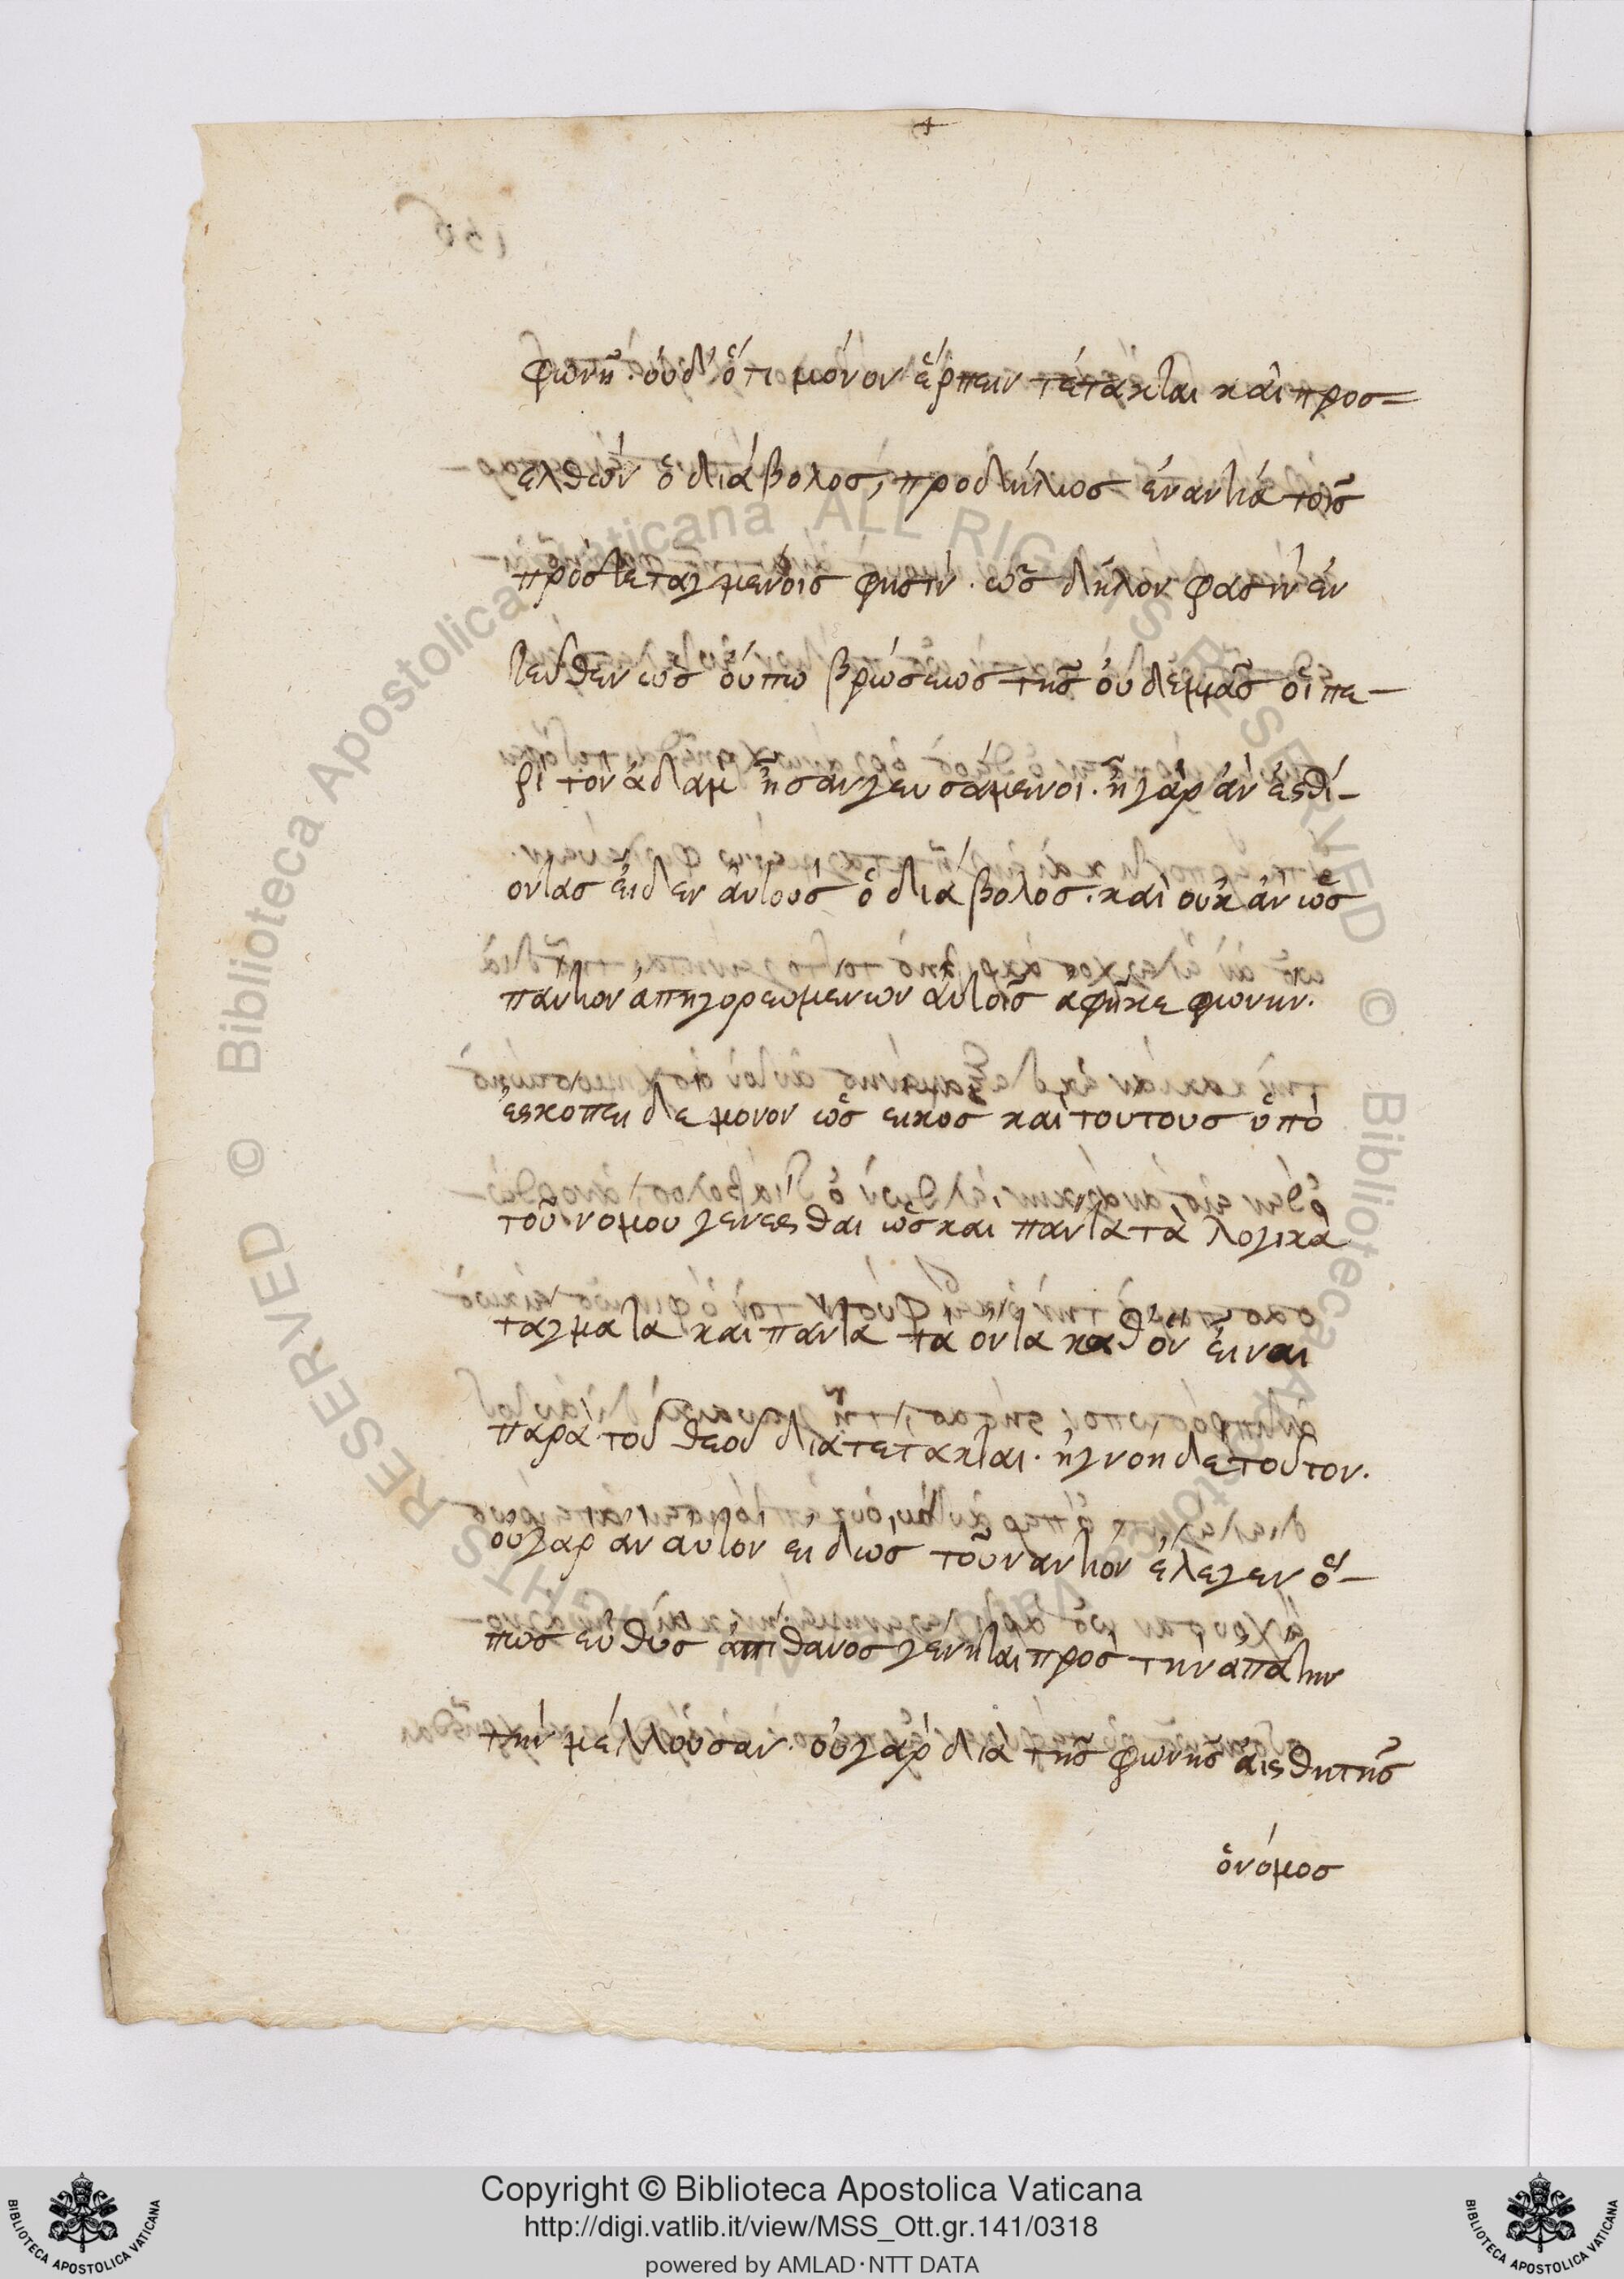 φωνῆ. οὐδ' ὅτι μόνον ἕρπειν τέτακται καὶ προσ=
ελθὼν ὁ διάβολος, προδήλως ἐναντία τοῖς
προστεταγμένοις φησίν. ὡς δῆλον φασὶν ἐν
τεῦθεν ὡς οὔπω βρώσεως τῆς οὐδεμιᾶς οἱ πε-
ρὶ τὸν ἀδὰμ ἦσαν γευσάμενοι. ἦ γὰρ ἀν ἐσθί-
οντας εἶδεν ἀυτοὺς ὁ διάβολος. καὶ οὐκ ἀν ὡς
πάντων ἀπηγορευμενων ἀυτοῖς ἀφῆκε φωνην.
ἐσκοπει δε μονον ὡς εικος καὶ τουτους ὑπὸ
τοῦ νομου γενεσθαι ὡς και παντα τὰ λογικὰ
ταγματα και παντα τὰ ὀντα καθ' ὁν εἰναι
παρὰ τοῦ θεοῦ διατετακται. ἠγνοει δε τοῦτον.
οὐ γαρ ἀν ἀυτον ειδως τοῦναντιον ἐλεγεν ὅ-
πως εὐθυς ἀπιθανος γενηται προς την ἀπατην
τὴν μέλλουσαν. οὐ γὰρ διὰ τῆς φωνῆς ἀισθητῆς
ὁ νόμος
Copyright © Biblioteca Apostolica Vaticana
http://digi.vatlib.it/view/MSS_Ott.gr.141/0318
powered by AMLAD·NTT DATA